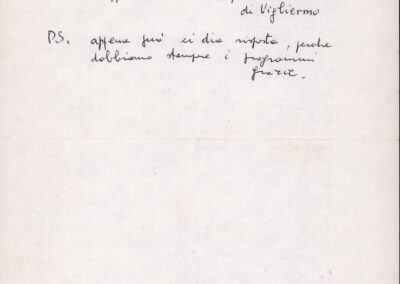 di Vigliermo
P.S. appena può ci dia risposta, perché
dobbiamo stampare i programmi
grazie.